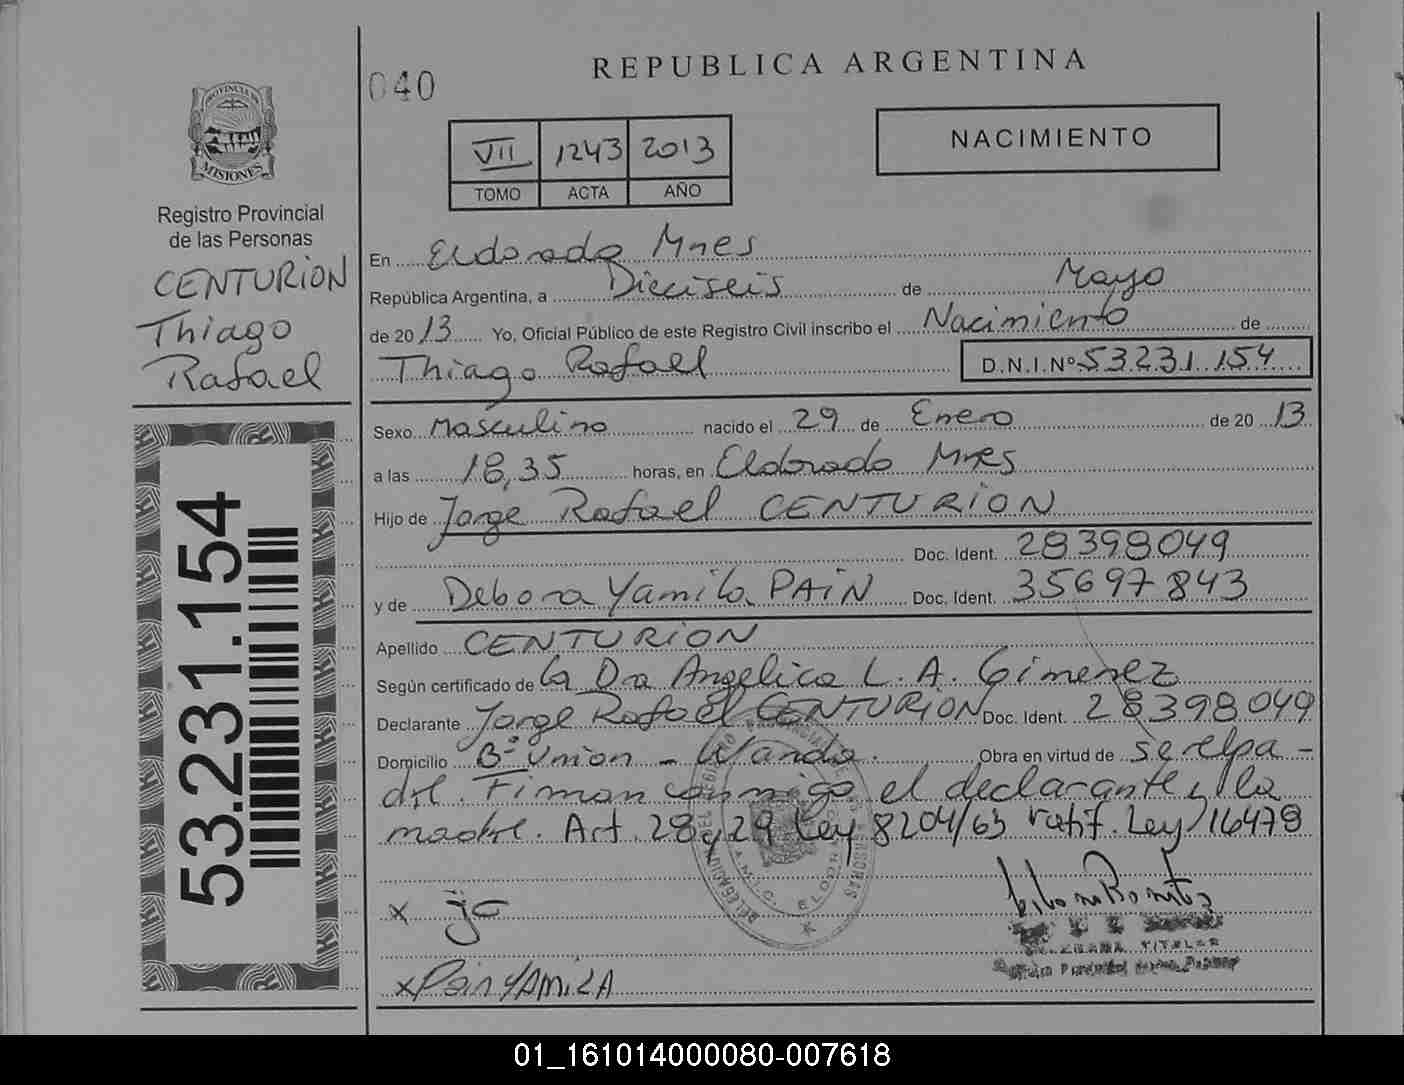 040
REPUBLICA ARGENTINA
NACIMIENTO
VII 1243 2013
TOMO ACTA AÑO
PROVINCIA DE
MISIONES
Registro Provincial
de las Personas
CENTURION
Thiago
Rafael
53.231.154
En Eldorado Mnes
República Argentina, a Dieciseis de Mayo
de 2013 Yo, Oficial Público de este Registro Civil inscribo el Nacimiento de
Thiago Rafael D.N.I.Nº 53231.154
Sexo Masculino nacido el 29 de Enero de 2013
a las 18,35 horas, en Eldorado Mnes
Hijo de Jorge Rafael CENTURION
Doc. Ident. 28398049
y de Debora Yamila PAIN Doc. Ident. 35697843
Apellido CENTURION
Según certificado de la Dra Angelica L. A. Gimenez
Declarante Jorge Rafael CENTURION Doc. Ident. 28398049
Domicilio Bº Union - Wanda. Obra en virtud de ser el pa-
dre. Firman conmigo el declarante y la
madre. Art. 28 y 29 Ley 8204/63 ratif. Ley 16478
x
x Pain YAMiLA
01_161014000080-007618